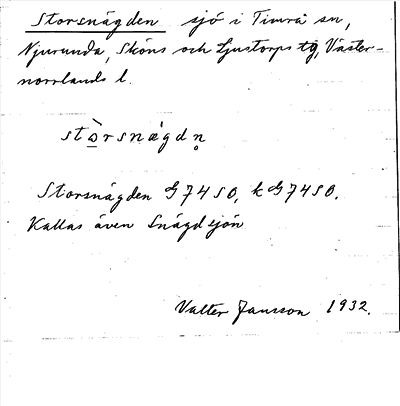 Storsnägden sjö i Timrå sn,
Njurunda, Sköns och Ljustorps tg, Väster-
norrlands l.
stòrsnägdn̥
Storsnägden G 74 S O, k G 74 S O.
Kallas även Snägdsjön
Valter Jansson 1932.